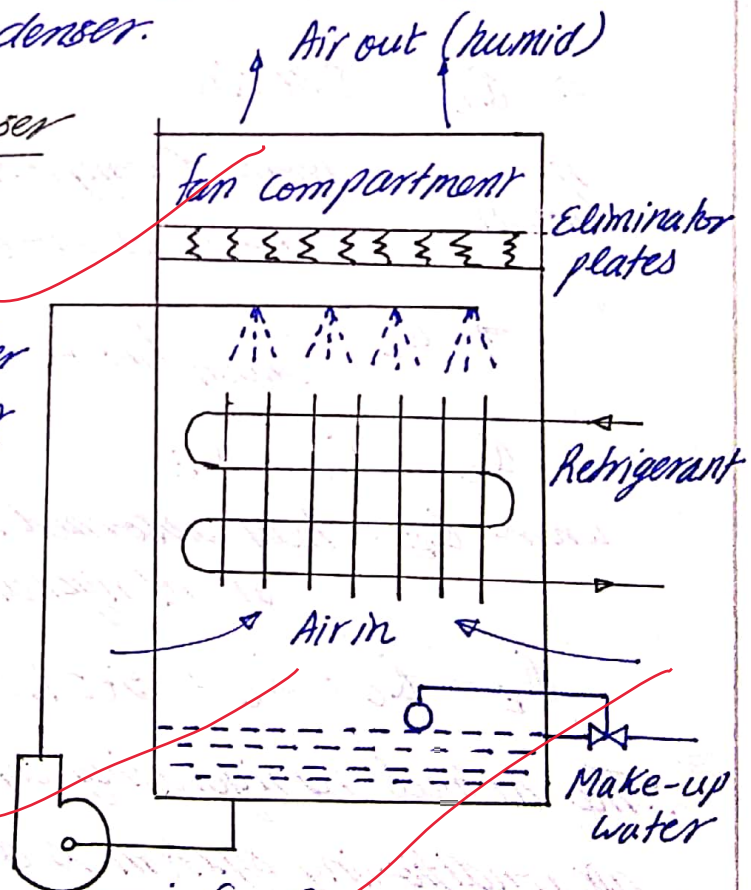 denser.
Air out (humid)
ser
fan compartment
Eliminator
plates
er
Refrigerant
Air in
Make-up
water